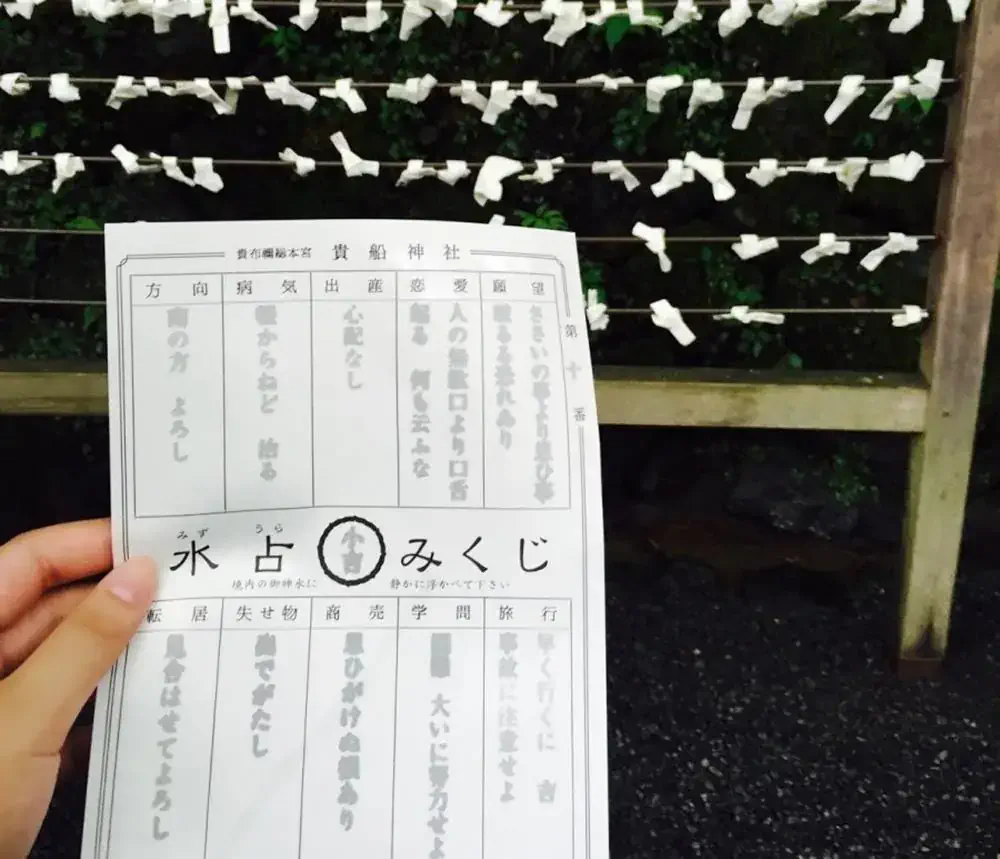 貴布禰総本宮 貴船神社
第十番
願望
ささいの事より思ひ事
るる恐れあり
恋愛
人の無駄口より口舌
起る 何も云ふな
出産
心配なし
病気
軽からねど 治る
方向
南の方 よろし
みず うら
水占 小吉 みくじ
境内の御神水に 静かに浮かべて下さい
旅行
早く行くに 吉
事故に注意せよ
学問
大いに努力せよ
商売
思ひがけぬ損あり
失せ物
出でがたし
転居
見合はせてよろし